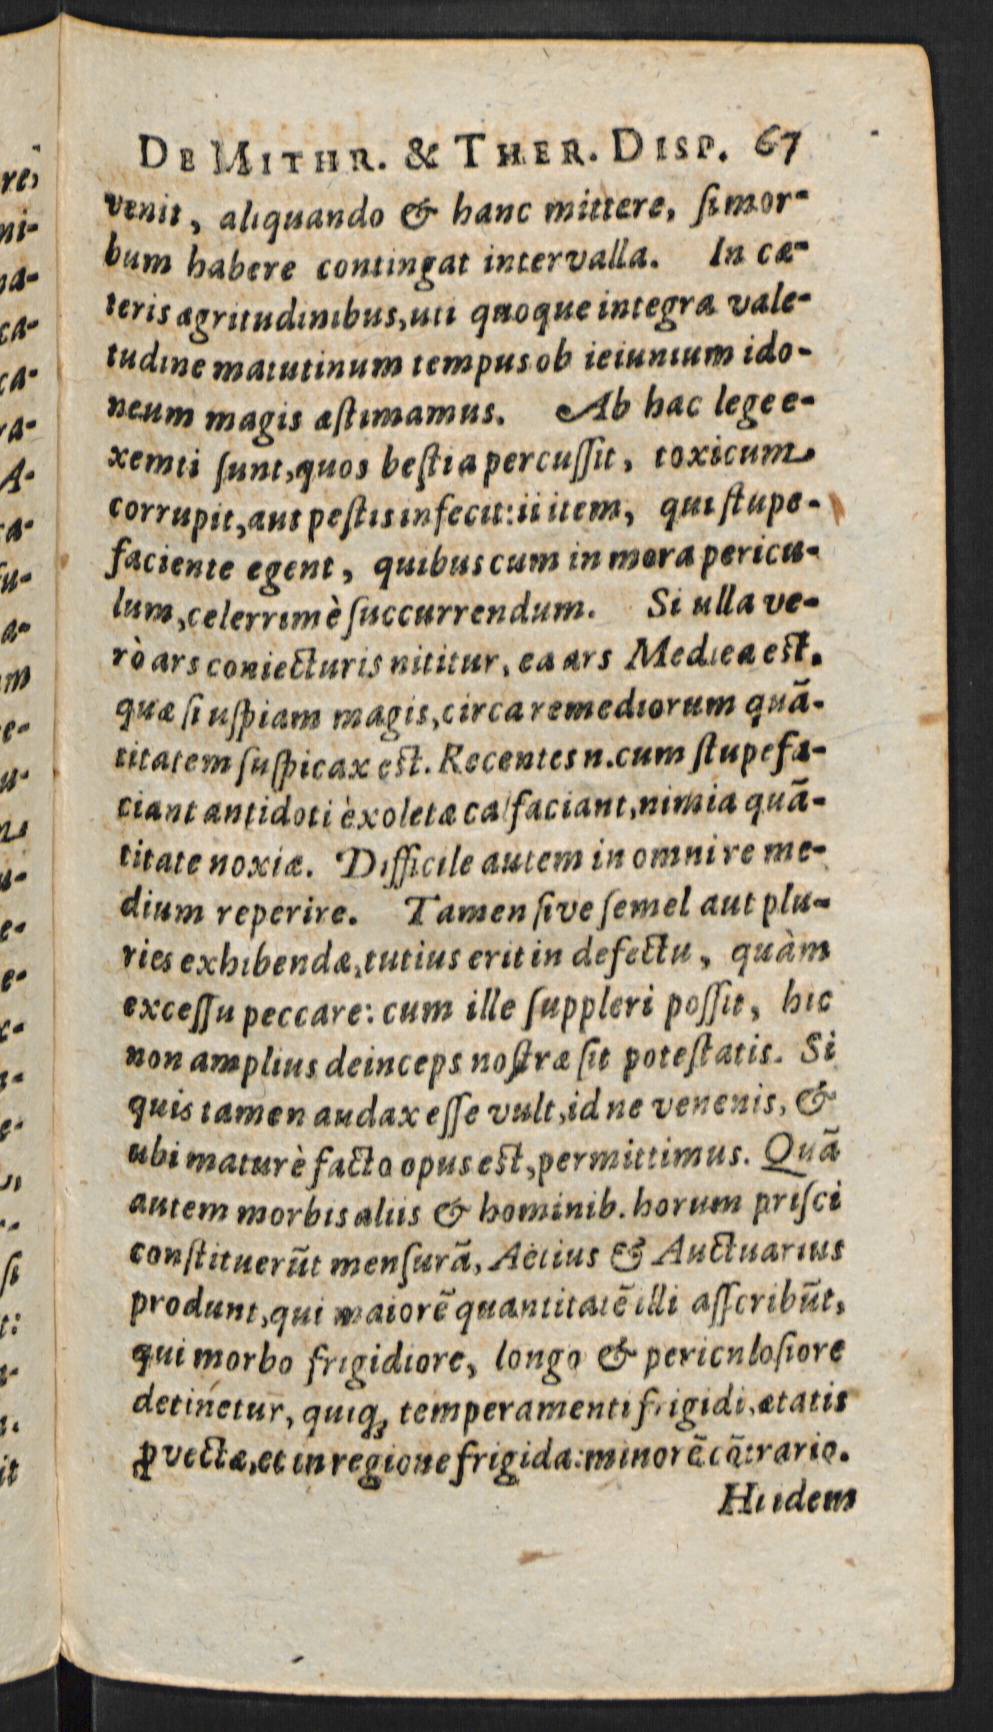 DE MITHR. & THER. DISP. 67
venit, aliquando & hanc mittere, ſi mor-
bum habere contingat intervalla. In cæ-
teris ægritudinibus, uti quoque integra vale-
tudine matutinum tempus ob ieiunium ido-
neum magis æſtimamus. Ab hac lege e-
xemti ſunt, quos beſtia percuſſit, toxicum
corrupit, aut peſtis infecit: ii item, qui ſtupe-
faciente egent, quibus cum in mora pericu-
lum, celerrimè ſuccurrendum. Si ulla ve-
rò ars coniecturis nititur, ea ars Medica est.
quæ ſi uſpiam magis, circa remediorum quã-
titatem ſuſpicax est. Recentes n. cum ſtupefa-
ciant antidoti èxoletæ calfaciant, nimia quã-
titate noxiæ. Difficile autem in omni re me-
dium reperire. Tamen ſive ſemel aut plu-
ries exhibendæ, tutius erit in defectu, quàm
exceſſu peccare: cum ille ſuppleri poſſit, hic
non amplius deinceps noſtræ ſit poteſtatis. Si
quis tamen audax eſſe vult, id ne venenis, &
ubi maturè facto opus est, permittimus. Quã
autem morbis aliis & hominib. horum priſci
conſtituerũt menſurã, Aëtius & Auctuarius
produnt, qui maiorẽ quantitatẽ illi aſſcribũt,
qui morbo frigidiore, longo & periculoſiore
detinetur, quiq́ꝫ temperamenti frigidi, ætatis
ꝓvectæ, et in regione frigida: minorẽ cõtrario.
Hiidem